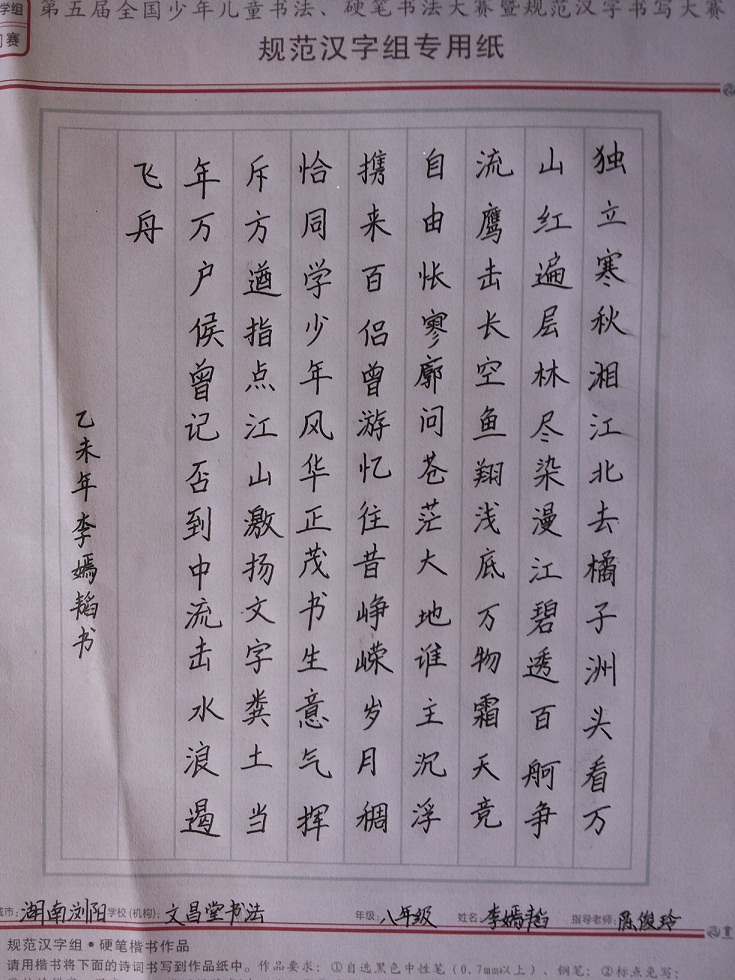 学组
赛
第五届全国少年儿童书法、硬笔书法大赛暨规范汉字书写大赛
规范汉字组专用纸
独立寒秋湘江北去橘子洲头看万
山红遍层林尽染漫江碧透百舸争
流鹰击长空鱼翔浅底万物霜天竞
自由怅寥廓问苍茫大地谁主沉浮
携来百侣曾游忆往昔峥嵘岁月稠
恰同学少年风华正茂书生意气挥
斥方遒指点江山激扬文字粪土当
年万户侯曾记否到中流击水浪遏
飞舟
乙未年李嫣韬书
城市：湖南浏阳 学校(机构)：文昌堂书法 年级：八年级 姓名：李嫣韬 指导老师：陈俊玲
规范汉字组•硬笔楷书作品
请用楷书将下面的诗词书写到作品纸中。作品要求：①自选黑色中性笔（0.7mm以上）、钢笔；②标点免写；